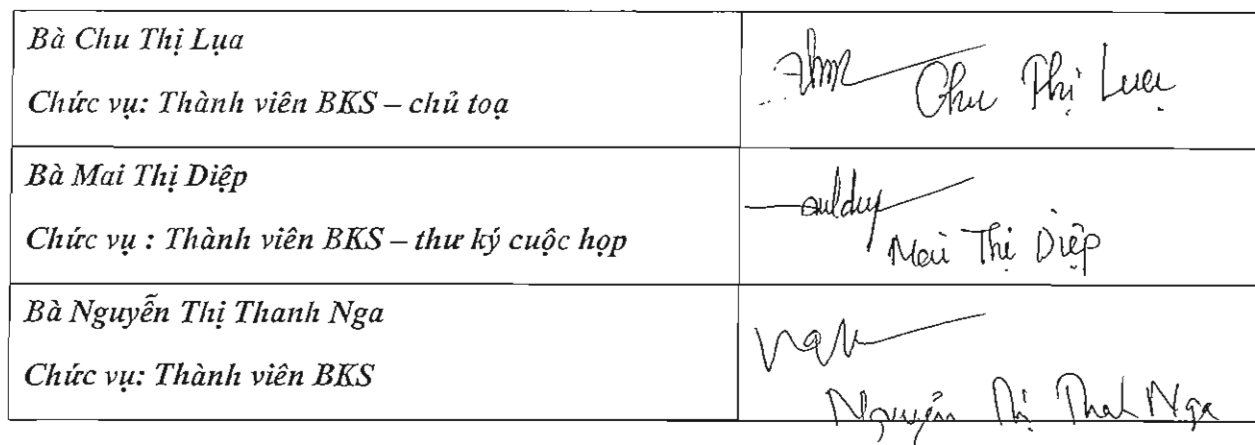 Bà Chu Thị Lụa
Chức vụ: Thành viên BKS – chủ toạ
Chu Thị Lụa
Bà Mai Thị Diệp
Chức vụ : Thành viên BKS – thư ký cuộc họp
Mai Thị Diệp
Bà Nguyễn Thị Thanh Nga
Chức vụ: Thành viên BKS
Nguyễn Thị Thanh Nga